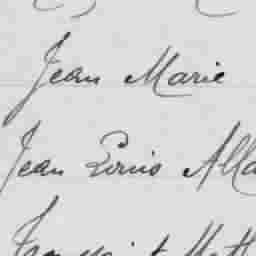 Jean Marie
Jean Louis Alla